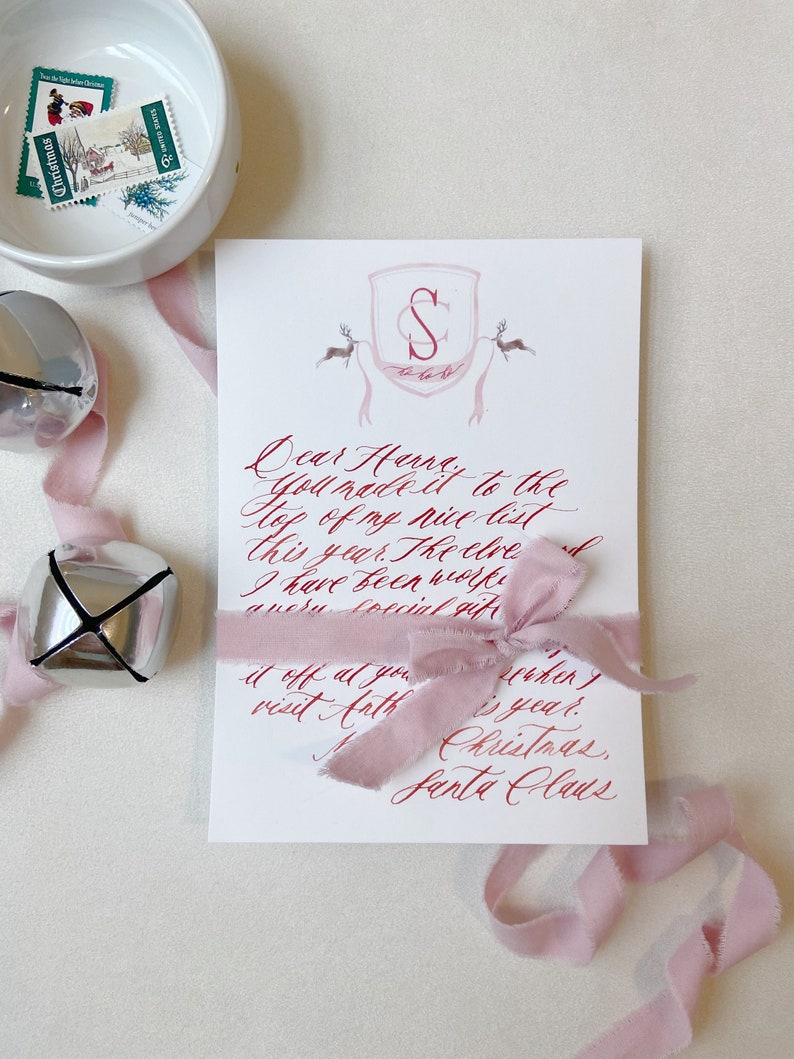 'Twas the Night before Christmas
Christmas
6c
UNITED STATES
juniper
SC
ho ho ho
Dear Hanna,
You made it to the
top of my nice list
this year. The elves
I have been
a very special gift
it off at
when I
visit this year.
Christmas,
Santa Claus